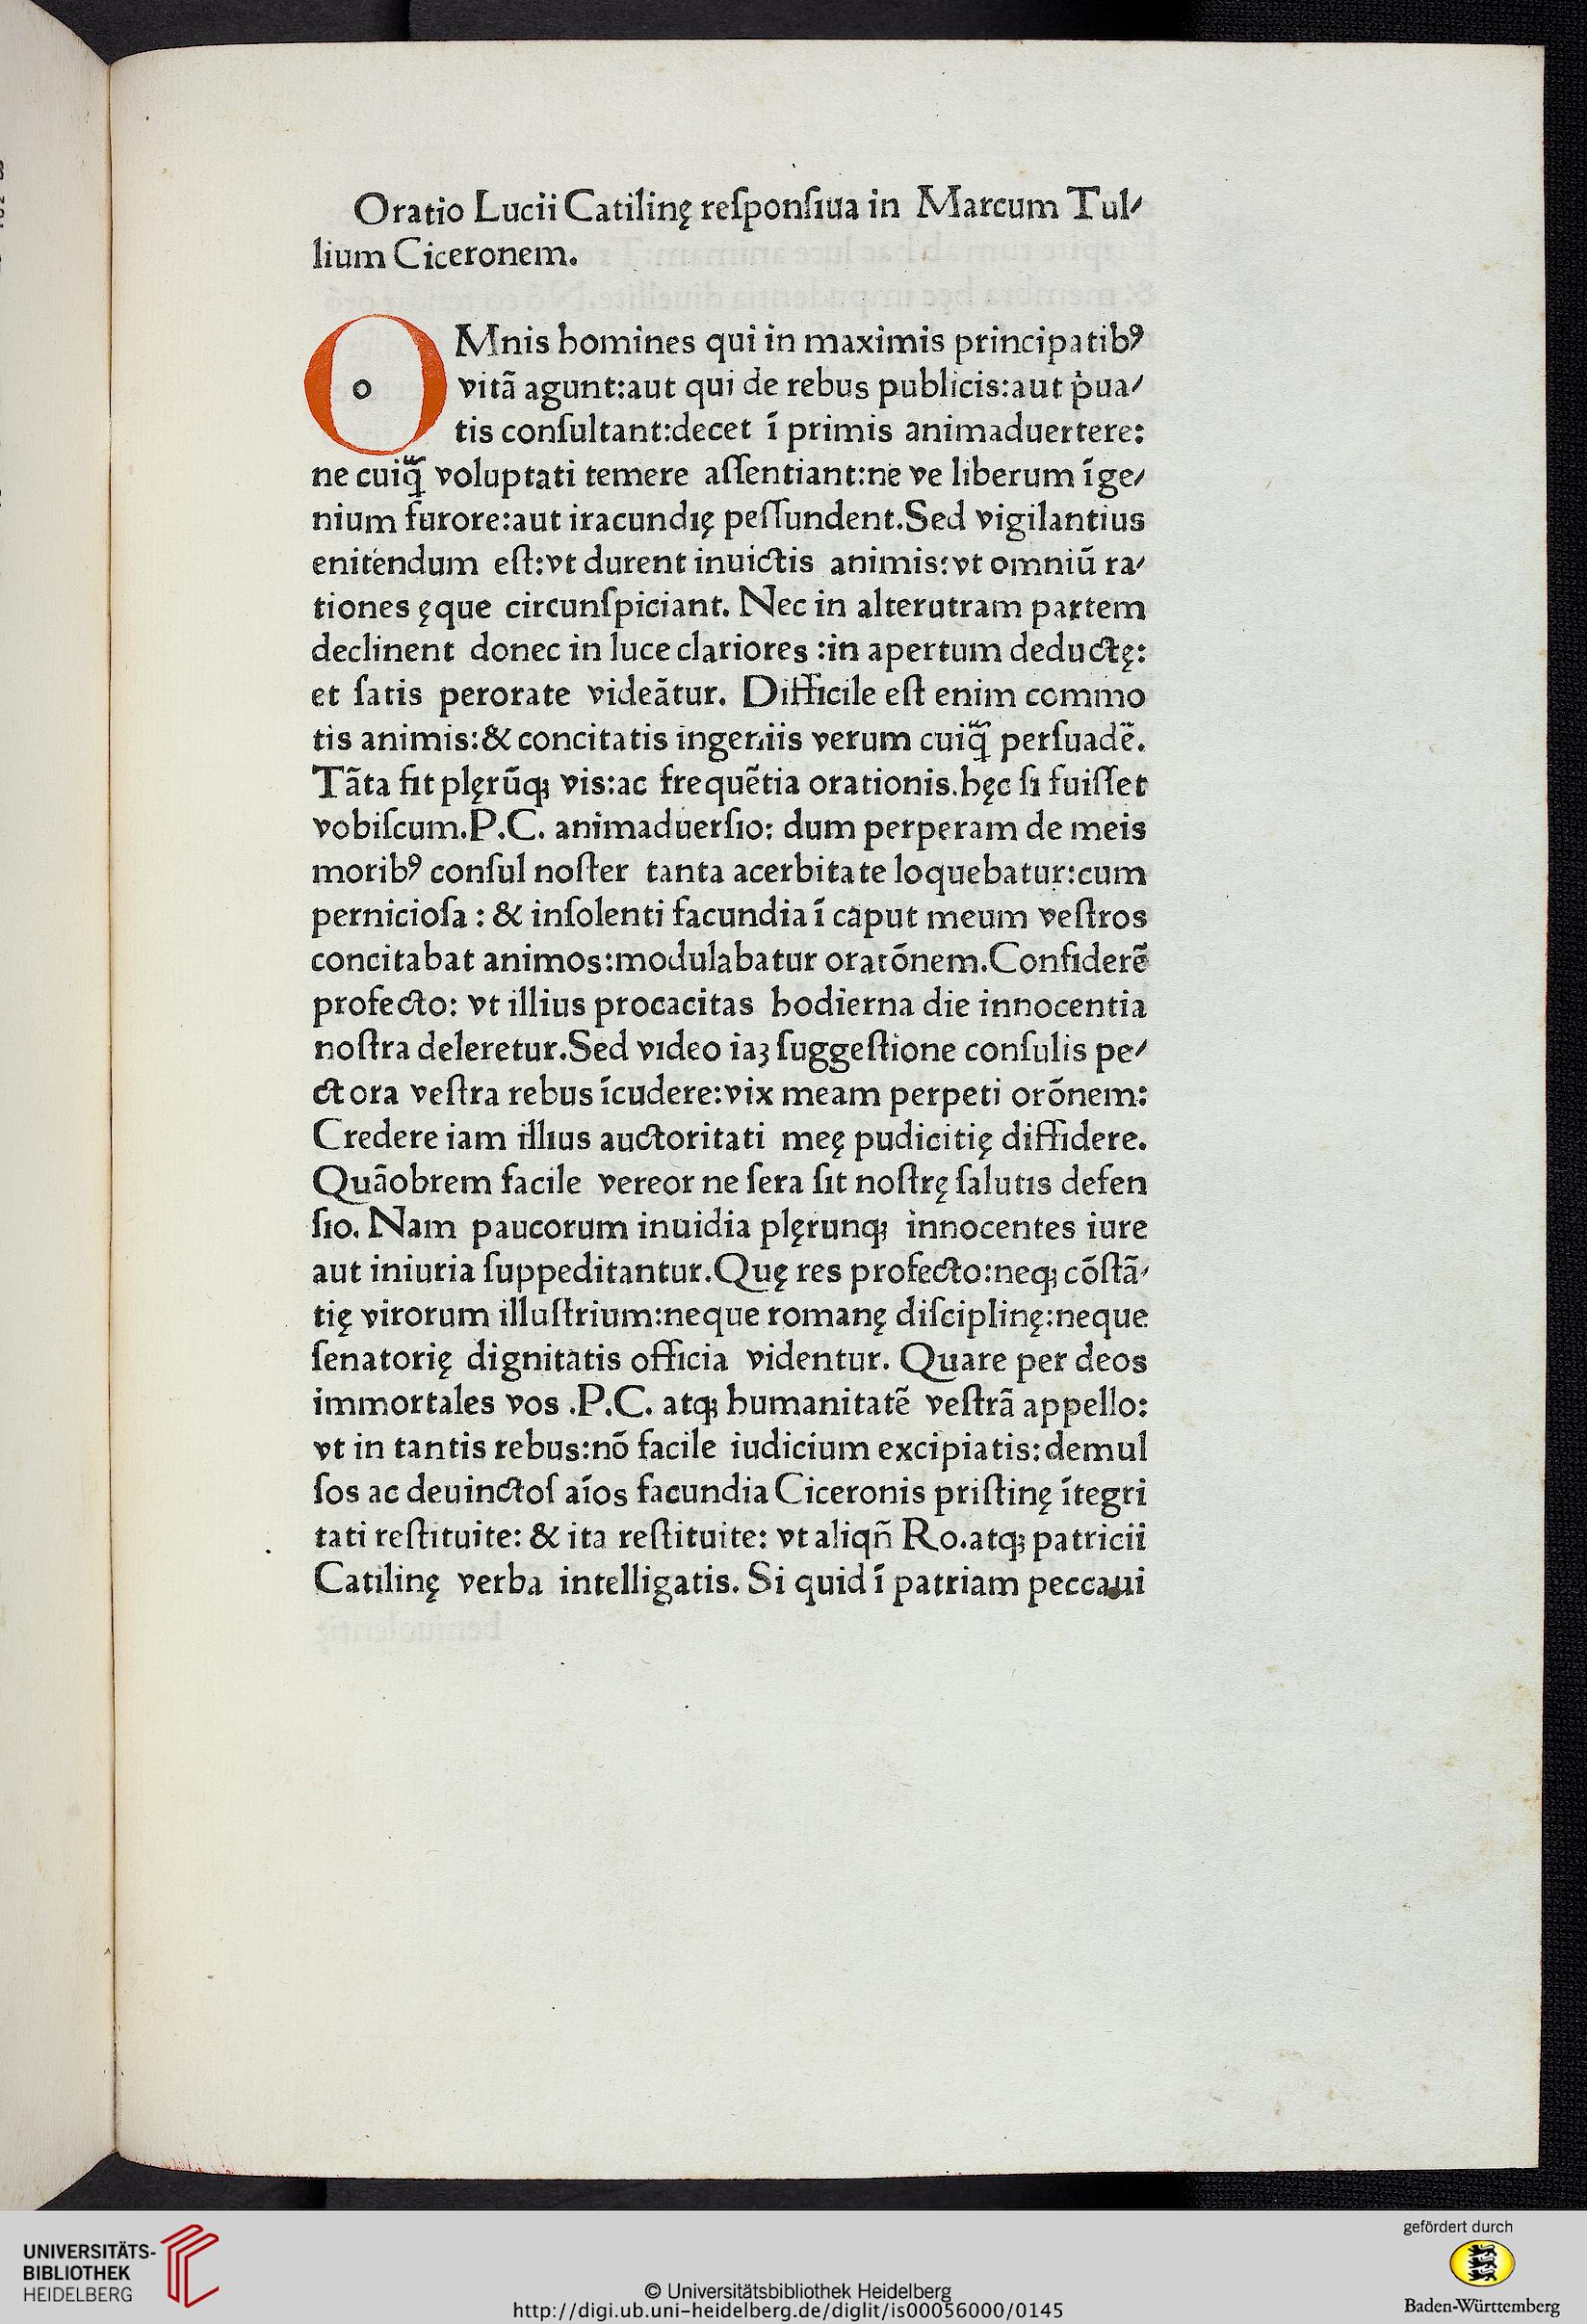 Oratio Lucii Catilinę reſponſiua in Marcum Tul⸗
lium Ciceronem.
OMnis homines qui in maximis principatibꝰ
o
vitã agunt:aut qui de rebus publicis:aut p̍ua⸗
tis conſultant:decet ĩ primis animaduertere:
ne cuiq̃ voluptati temere aſſentiant:ne ve liberum ĩge⸗
nium furore:aut iracundię peſſundent.Sed vigilantius
enitendum eſt:vt durent inuictis animis:vt omniũ ra⸗
tiones ęque circunſpiciant. Nec in alterutram partem
declinent donec in luce clariores :in apertum deductę:
et ſatis perorate videãtur. Difficile eſt enim commo
tis animis:& concitatis ingeniis verum cuiq̃ perſuadẽ.
Tãta fit plęrũqꝫ vis:ac frequẽtia orationis.hęc ſi fuiſſet
vobiſcum.P.C. animaduerſio: dum perperam de meis
moribꝰ conſul noſter tanta acerbitate loquebatur:cum
pernicioſa : & inſolenti facundia ĩ caput meum veſtros
concitabat animos:modulabatur oratõnem.Confiderẽ
profecto: vt illius procacitas hodierna die innocentia
noſtra deleretur.Sed video iaꝫ ſuggeſtione conſulis pe⸗
ctora veſtra rebus ĩcudere:vix meam perpeti orõnem:
Credere iam illius auctoritati meę pudicitię diffidere.
Quãobrem facile vereor ne ſera ſit noſtrę ſalutis defen
ſio. Nam paucorum inuidia plęrunqꝫ innocentes iure
aut iniuria ſuppeditantur.Quę res profecto:neqꝫ cõſtã⸗
tię virorum illuſtrium:neque romanę diſciplinę:neque
ſenatorię dignitatis officia videntur. Quare per deos
immortales vos .P.C. atqꝫ humanitatẽ veſtrã appello:
vt in tantis rebus:nõ facile iudicium excipiatis:demul
ſos ac deuinctoſ aĩos facundia Ciceronis priſtinę ĩtegri
tati reſtituite: & ita reſtituite: vt aliqñ Ro.atqꝫ patricii
Catilinę verba intelligatis. Si quid ĩ patriam peccaui
UNIVERSITÄTS-
BIBLIOTHEK
HEIDELBERG
© Universitätsbibliothek Heidelberg
http://digi.ub.uni-heidelberg.de/diglit/is00056000/0145
gefördert durch
Baden-Württemberg